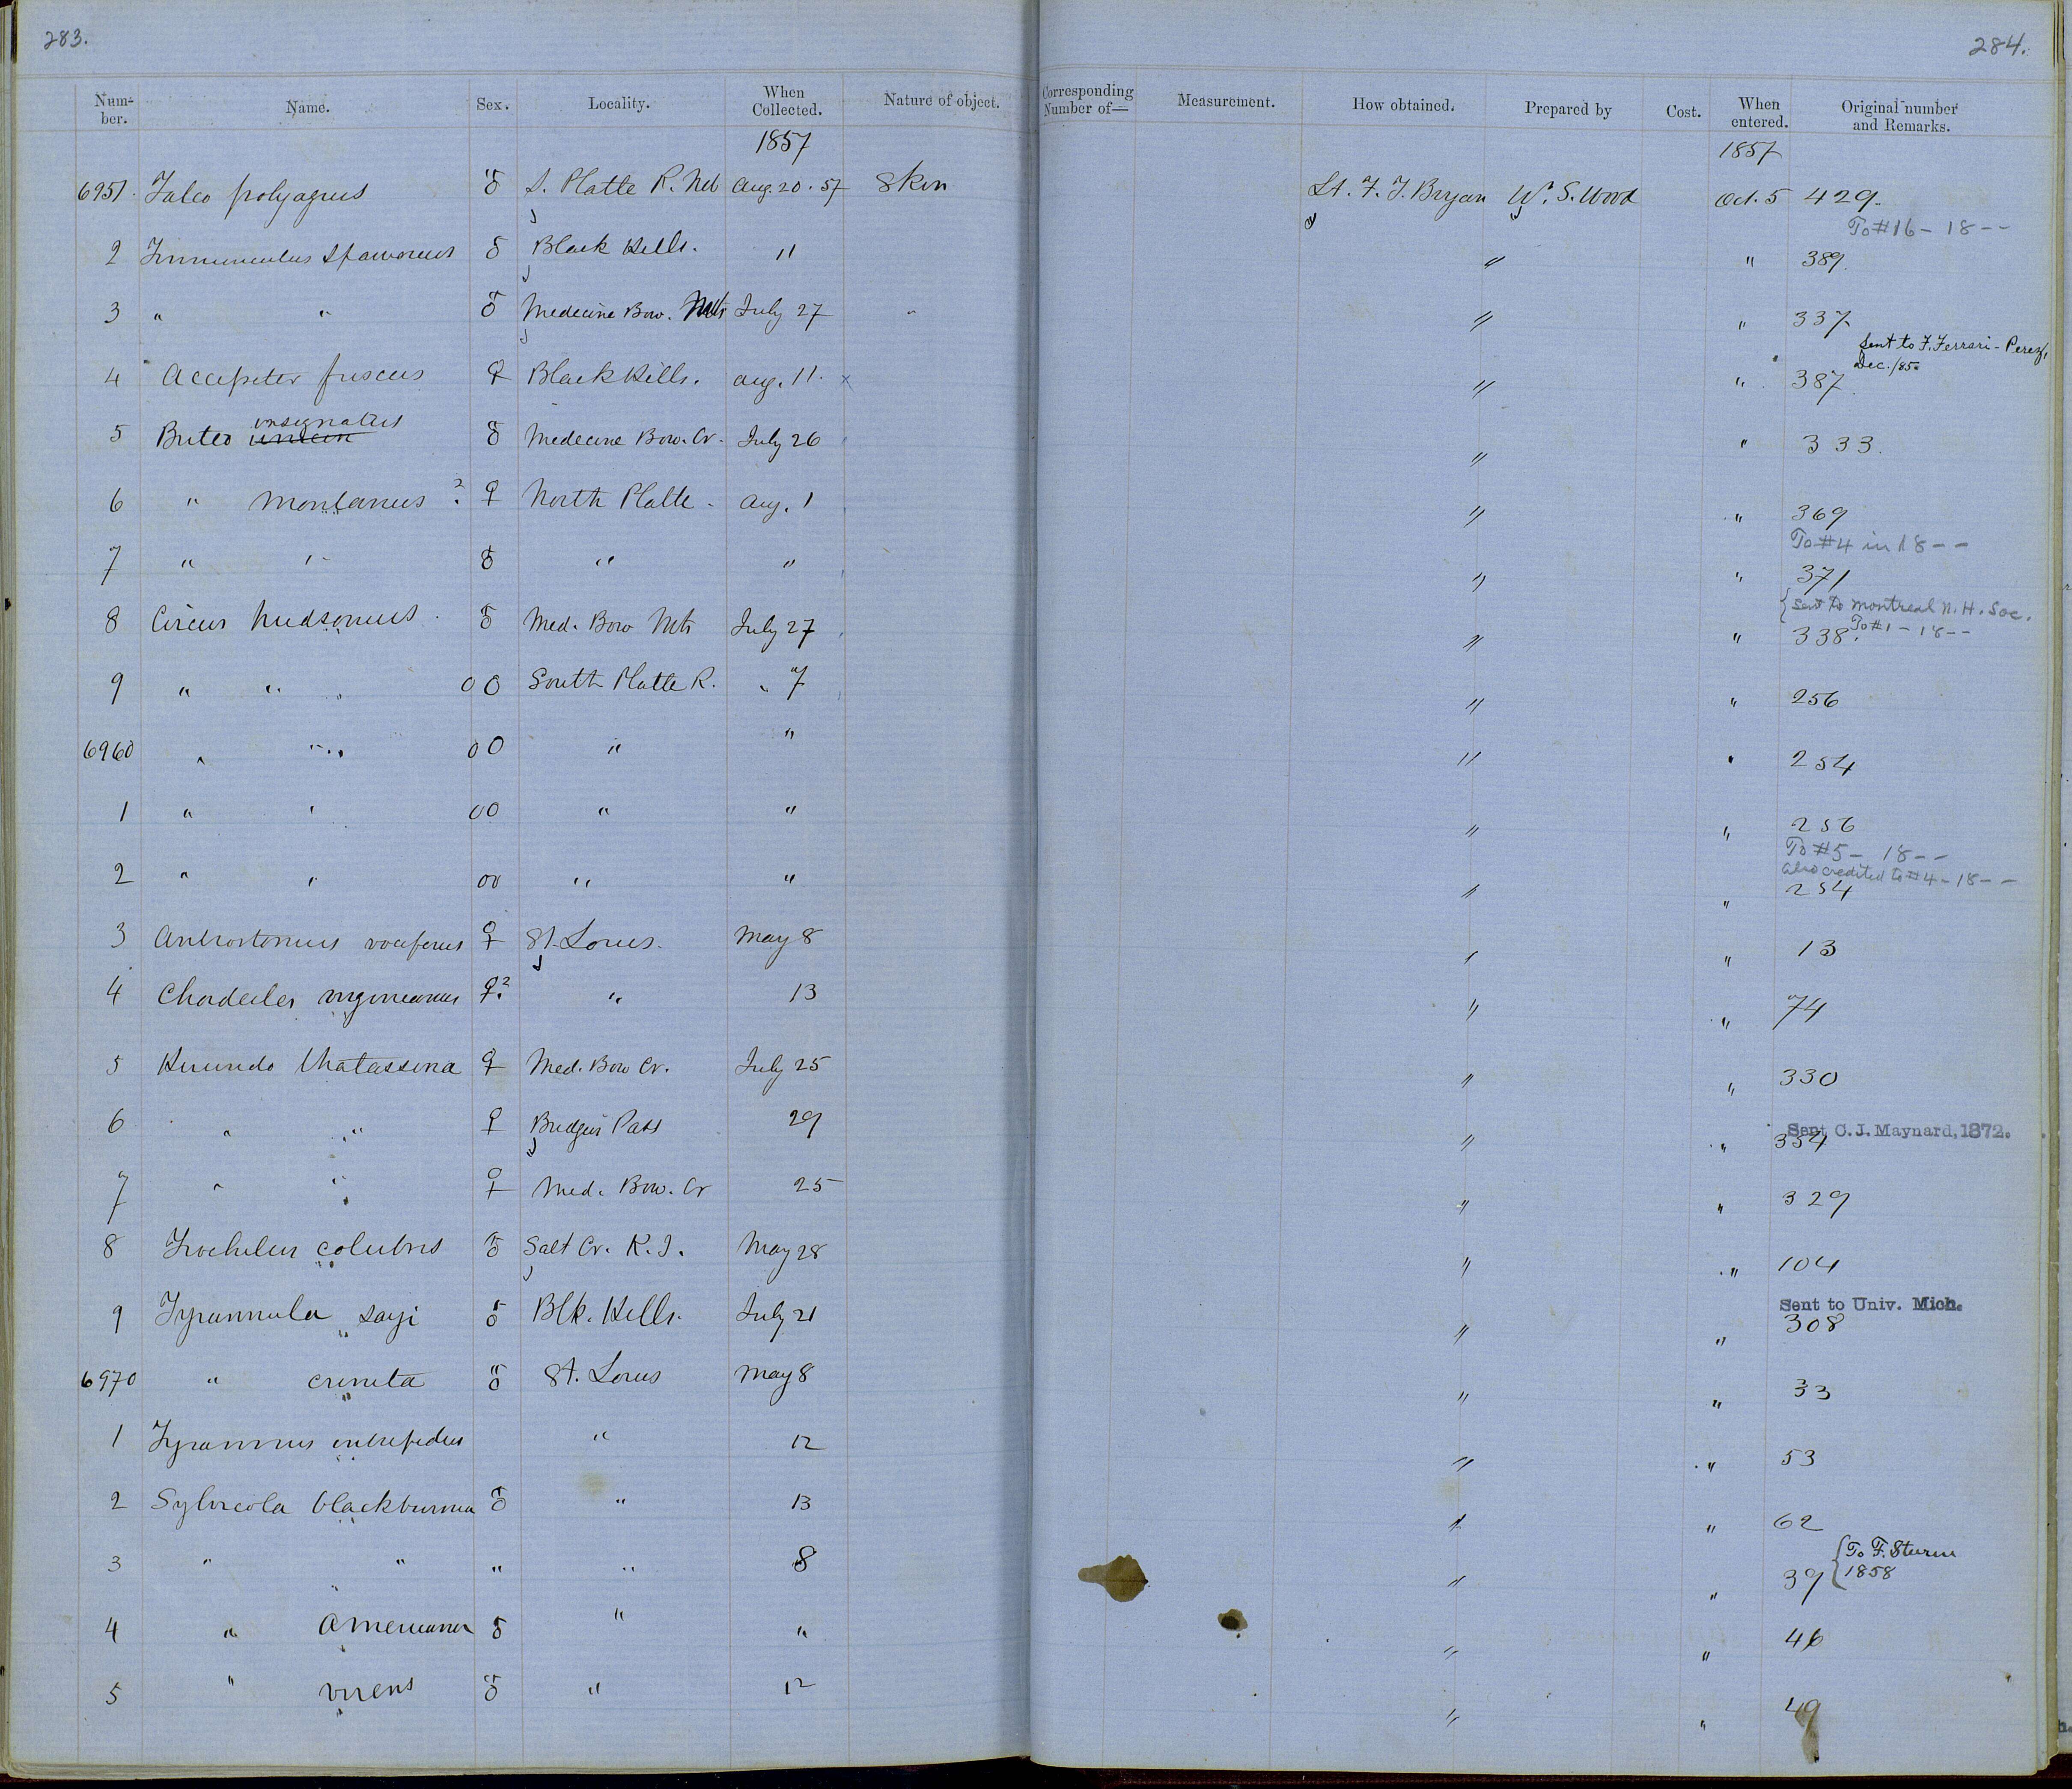 283.
284.
Num-ber. Name. Sex. Locality. When Collected. Nature of object. Corresponding Number of— Measurement. How obtained. Prepared by Cost. When entered. Original number and Remarks.
1857 1857
6951. Falco polyagrus ♂ S. Platte R. Neb Aug. 20. 57 Skin Lt. F. T. Bryan W. S. Wood Oct. 5 429.
To #16 - 18 - -
2 Tinnunculus Sparverius ♂ Black Hills. 11 " " 389.
3 " " ♂ Medecine Bow. Mts July 27 " " " 337
Sent to F. Ferrari-Perez,
Dec. /85.
4 Accipiter fuscus ♀ Black Hills. Aug. 11. x " " 387.
insignatus
5 Buteo ♂ Medecine Bow. Cr. July 26 " " 333.
6 " montanus ? ♀ North Platte. Aug. 1 " " 369
To #4 in 18 - -
7 " " ♂ " " " " 371
{ Sent to Montreal N. H. Soc.
To #1 - 18 - -
8 Circus hudsonius. ♂ Med. Bow Mts July 27 " " 338.
9 " " O O South Platte R. " 7 " " 256
6960 " " O O " " " " 254
1 " " O O " " " " 256
To #5 - 18 - -
also credited to #4 - 18 - -
2 " " O O " " " " 254
3 Antrostomus vociferus ♀ St. Louis. May 8 " " 13
4 Chordeiles virginianus ♀? " 13 " " 74
5 Hirundo thalassina ♀ Med. Bow Cr. July 25 " " 330
Sent C. J. Maynard, 1872.
6 " " ♀ Bridgers Pass 29 " " 354
7 " " ♀ Med. Bow. Cr 25 " " 329
8 Trochilus colubris ♂ Salt Cr. K. T. May 28 " " 104
Sent to Univ. Mich.
9 Tyrannula sayi ♂ Blk. Hills. July 21 " " 308
6970 " crinita ♂ St. Louis May 8 " " 33
1 Tyrannus intrepidus " 12 " " 53
2 Sylvicola blackburnia ♂ " 13 " " 62
{ To F. Sturm
1858
3 " " " " 8 " " 39
4 " Americana ♂ " " " " 46
5 " virens ♂ " 12 " " 49